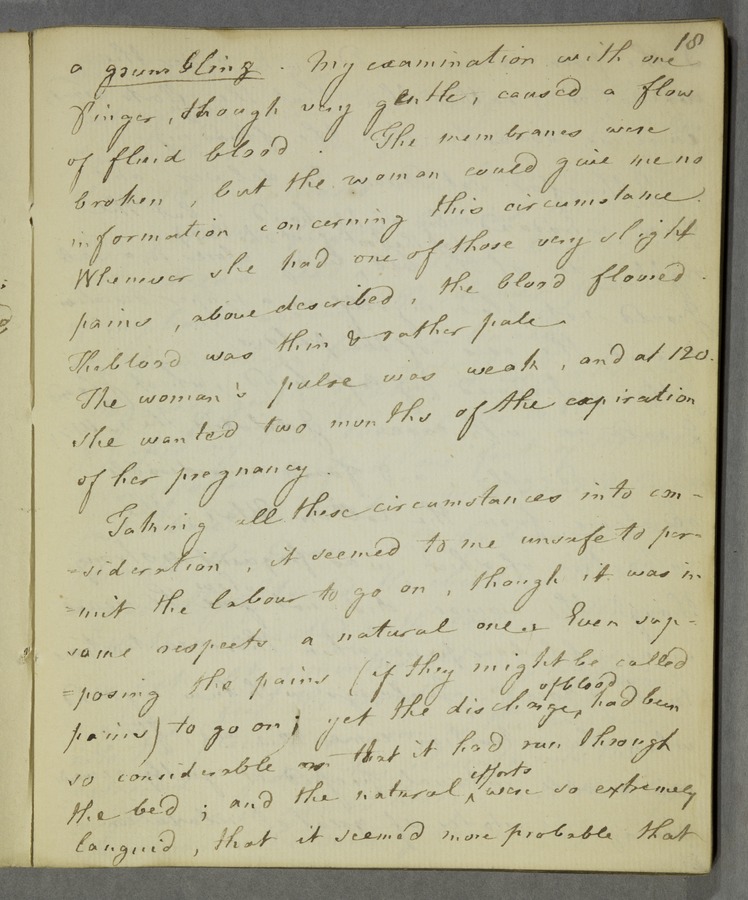 18
a grumbling. My examination with one
finger, though very gentle, caused a flow
of fluid blood. The membranes were
broken, but the woman could give me no
information concerning this circumstance.
Whenever she had one of those very slight
pains, above described, the blood flowed.
The blood was thin & rather pale.
The woman's pulse was weak, and at 120.
she wanted two months of the expiration
of her pregnancy.
Taking all these circumstances into con-
=sideration, it seemed to me unsafe to per-
=mit the labour to go on, though it was in
some respects a natural one. Even sup-
=posing the pains (if they might be called
pains) to go on; yet the discharge of blood had been
so considerable that it had run through
the bed; and the natural efforts were so extremely
languid, that it seemed more probable that